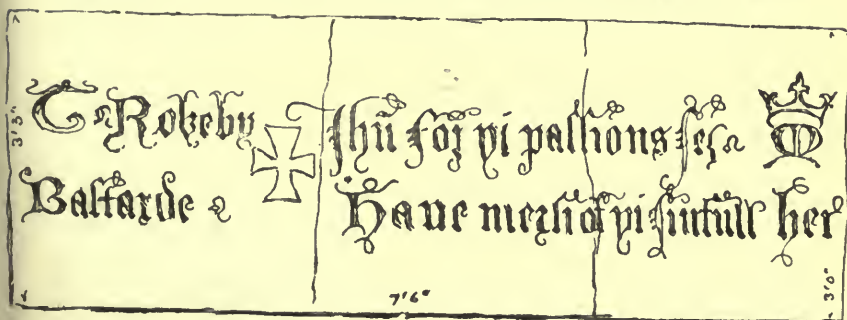 T Rokeby
Bastarde
Ihū for yi passions ser M
Haue mersi of yi sinfull her
3'3"
7'6"
3'0"